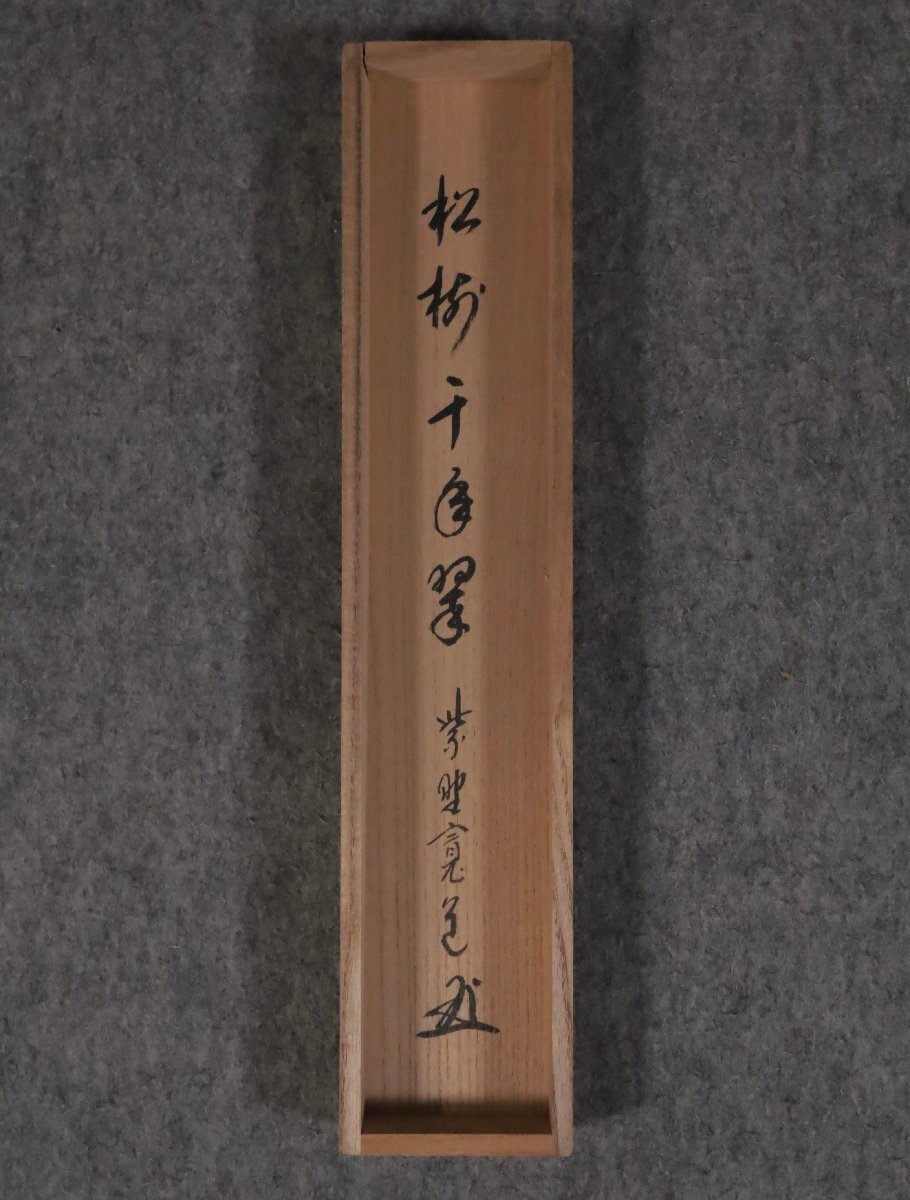 松樹千年翠 紫野寛道